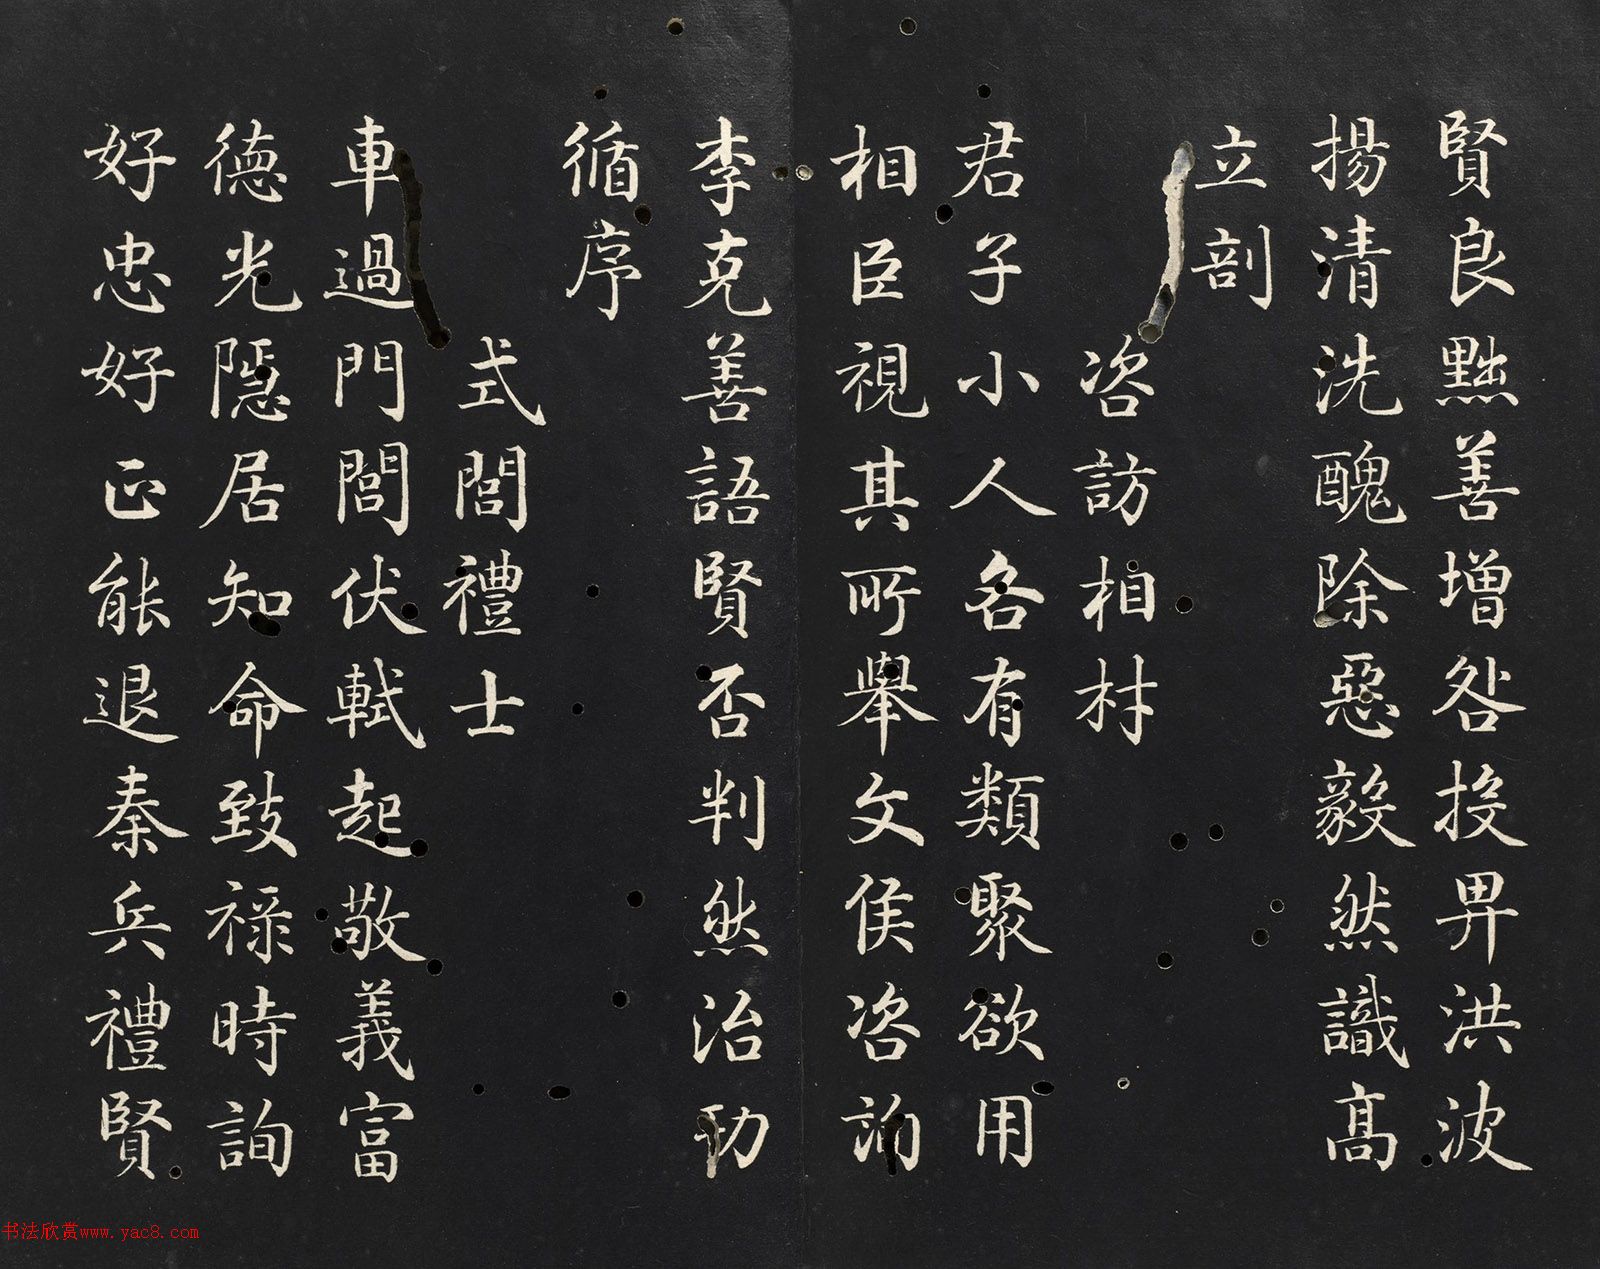 賢良黜善增咎投畀洪波
揚清洗醜除惡毅然識高
立剖
咨訪相材
君子小人各有類聚欲用
相臣視其所舉文侯咨詢
李克善語賢否判然治功
循序
式閭禮士
車過門閭伏軾起敬義富
德光隱居知命致祿時詢
好忠好正能退秦兵禮賢
书法欣赏www.yac8.com